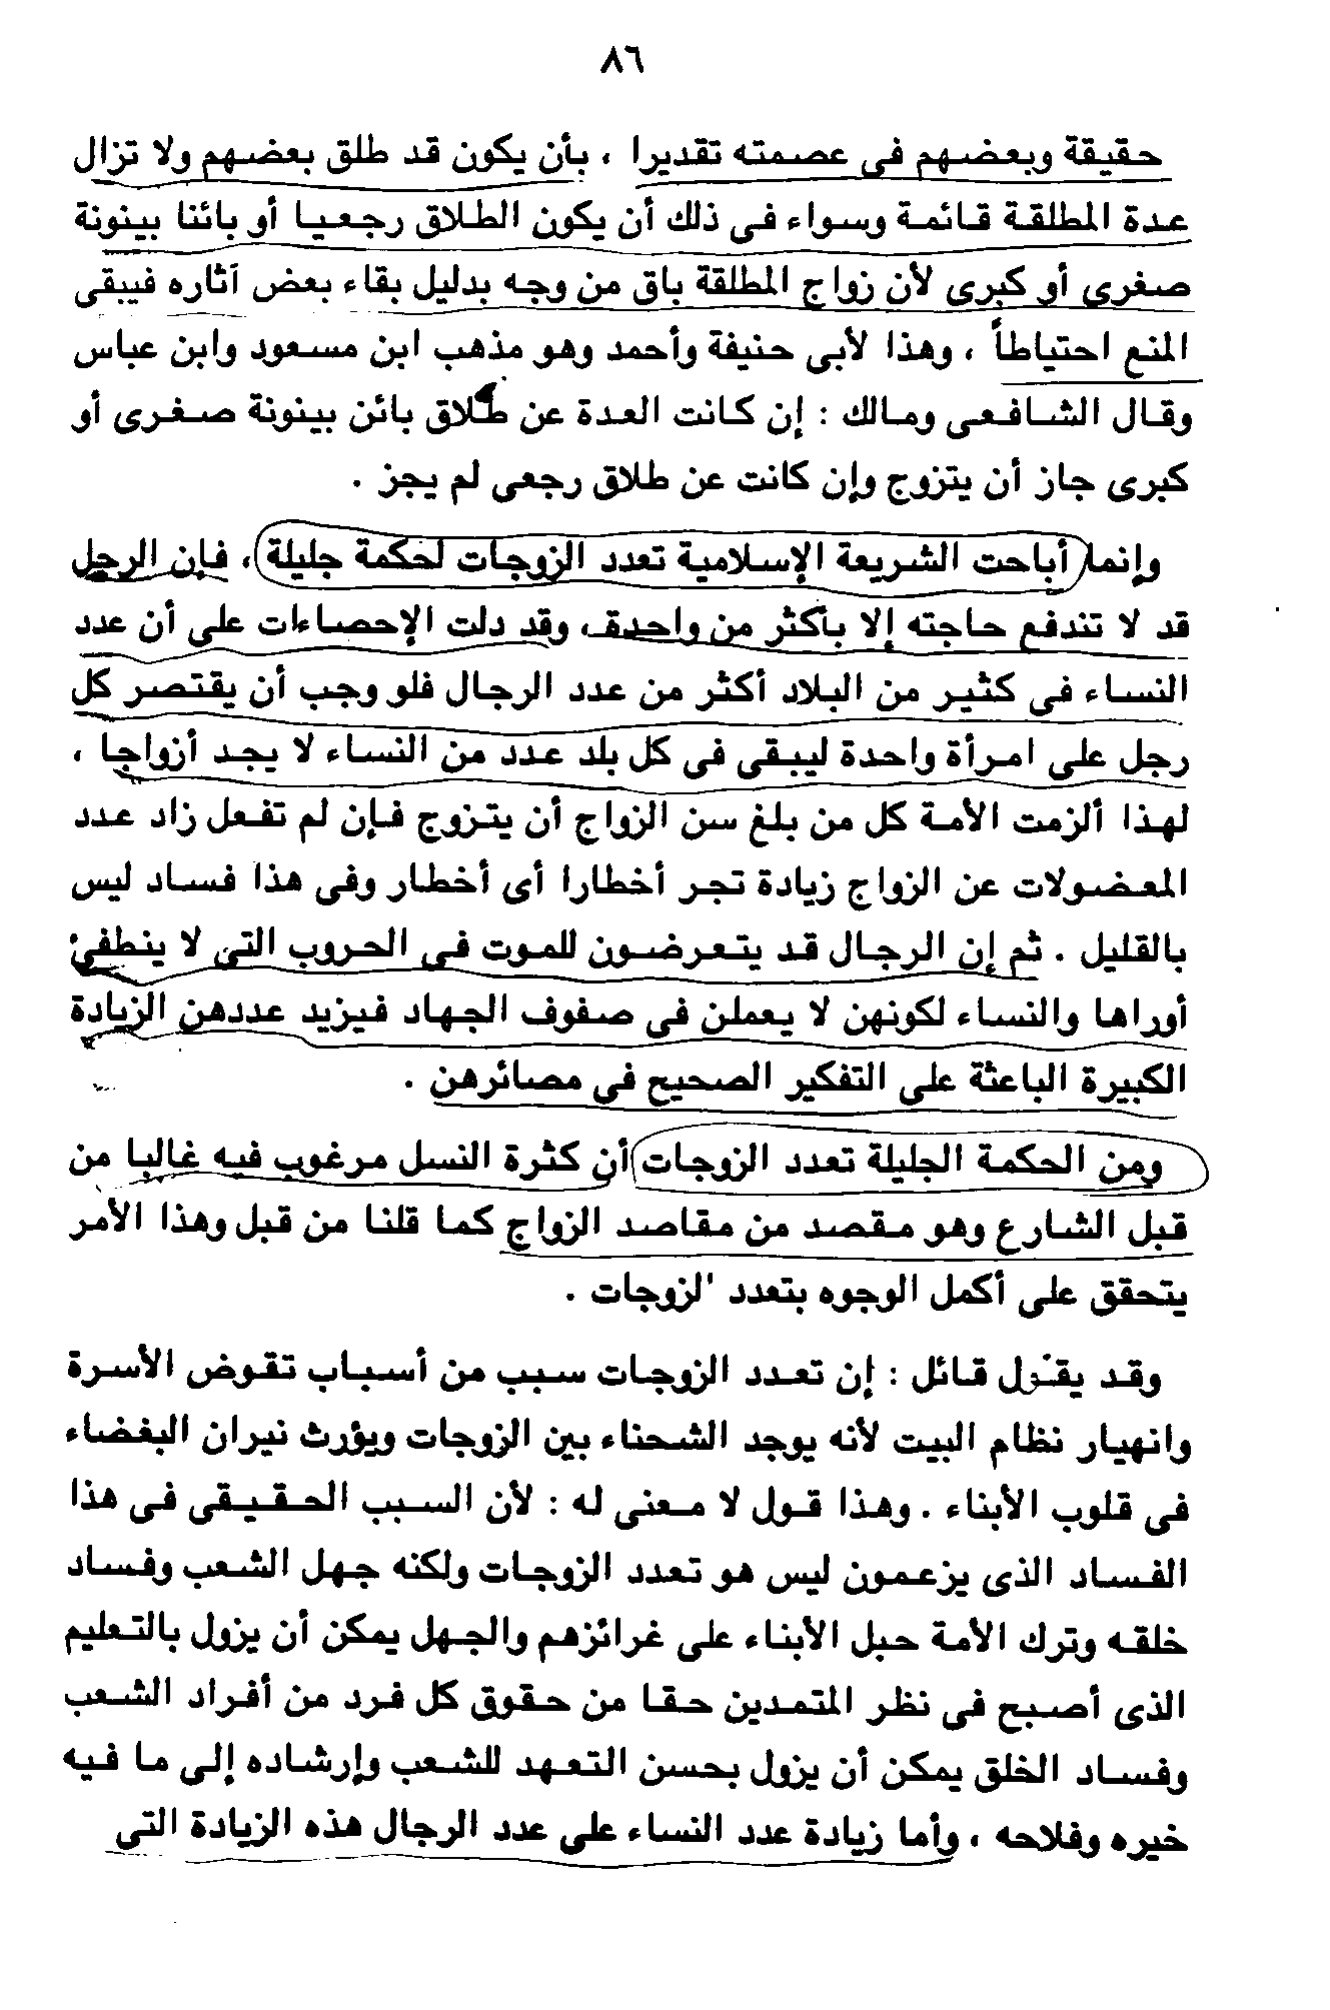 ٨٦
حقيقة وبعضهم فى عصمته تقديرا ، بأن يكون قد طلق بعضهم ولا تزال
عدة المطلقة قائمة وسواء فى ذلك أن يكون الطلاق رجعيا أو بائنا بينونة
صغرى أو كبرى لأن زواج المطلقة باق من وجه بدليل بقاء بعض آثاره فيبقى
المنع احتياطاً ، وهذا لأبى حنيفة وأحمد وهو مذهب ابن مسعود وابن عباس
وقال الشافعى ومالك : إن كانت العدة عن طلاق بائن بينونة صغرى أو
كبرى جاز أن يتزوج وإن كانت عن طلاق رجعى لم يجز .
وإنما أباحت الشريعة الإسلامية تعدد الزوجات لحكمة جليلة ، فإن الرجل
قد لا تندفع حاجته إلا بأكثر من واحدة ، وقد دلت الإحصاءات على أن عدد
النساء فى كثير من البلاد أكثر من عدد الرجال فلو وجب أن يقتصر كل
رجل على امرأة واحدة ليبقى فى كل بلد عدد من النساء لا يجد أزواجا ،
لهذا ألزمت الأمة كل من بلغ سن الزواج أن يتزوج فإن لم تفعل زاد عدد
المعضولات عن الزواج زيادة تجر أخطارا أى أخطار وفى هذا فساد ليس
بالقليل . ثم إن الرجال قد يتعرضون للموت فى الحروب التى لا ينطفئ
أوراها والنساء لكونهن لا يعملن فى صفوف الجهاد فيزيد عددهن الزيادة
الكبيرة الباعثة على التفكير الصحيح فى مصائرهن .
ومن الحكمة الجليلة تعدد الزوجات أن كثرة النسل مرغوب فيه غالبا من
قبل الشارع وهو مقصد من مقاصد الزواج كما قلنا من قبل وهذا الأمر
يتحقق على أكمل الوجوه بتعدد الزوجات .
وقد يقول قائل : إن تعدد الزوجات سبب من أسباب تقوض الأسرة
وانهيار نظام البيت لأنه يوجد الشحناء بين الزوجات ويؤرث نيران البغضاء
فى قلوب الأبناء . وهذا قول لا معنى له : لأن السبب الحقيقى فى هذا
الفساد الذى يزعمون ليس هو تعدد الزوجات ولكنه جهل الشعب وفساد
خلقه وترك الأمة حبل الأبناء على غرائزهم والجهل يمكن أن يزول بالتعليم
الذى أصبح فى نظر المتمدين حقا من حقوق كل فرد من أفراد الشعب
وفساد الخلق يمكن أن يزول بحسن التعهد للشعب وإرشاده إلى ما فيه
خيره وفلاحه ، وأما زيادة عدد النساء على عدد الرجال هذه الزيادة التى